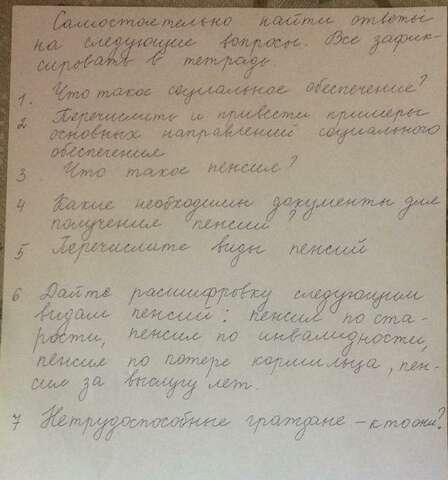 Самостоятельно найти ответы
на следующие вопросы. Все зафик-
сировать в тетрадь.
1. Что такое социальное обеспечение?
2 Перечислить и привести примеры
основных направлений социального
обеспечения
3. Что такое пенсия?
4 Какие необходимы документы для
получения пенсии?
5 Перечислите виды пенсий
6 Дайте расшифровку следующим
видам пенсий: пенсия по ста-
рости, пенсия по инвалидности,
пенсия по потере кормильца, пен-
сия за выслугу лет.
7 Нетрудоспособные граждане - кто они?